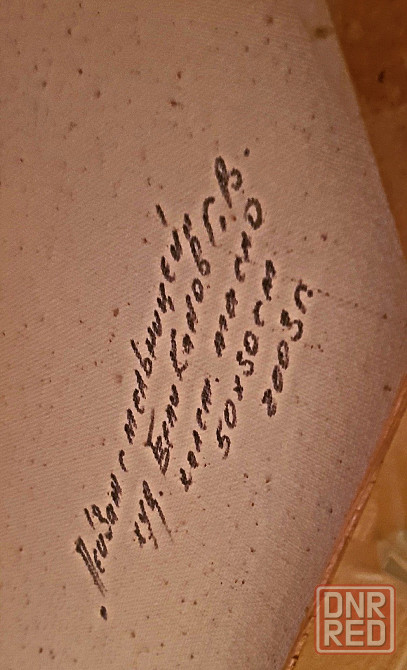 "Пейзаж с мельницей"
худ. Великанов Г.В.
холст. масло
50х50см
2003г.
DNR
RED